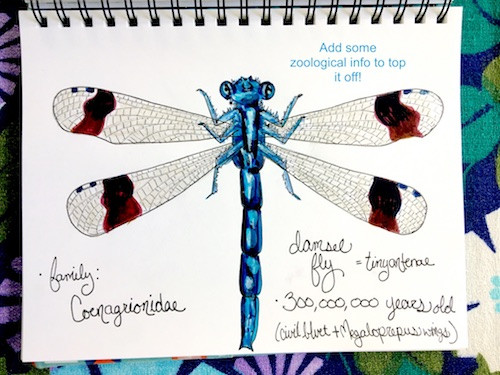 Add some
zoological info to top
it off!
damsel
fly = tiny antenae
· family:
Coenagrionidae
· 300,000,000 years old
(civil blvet + Megaloprepus wings)